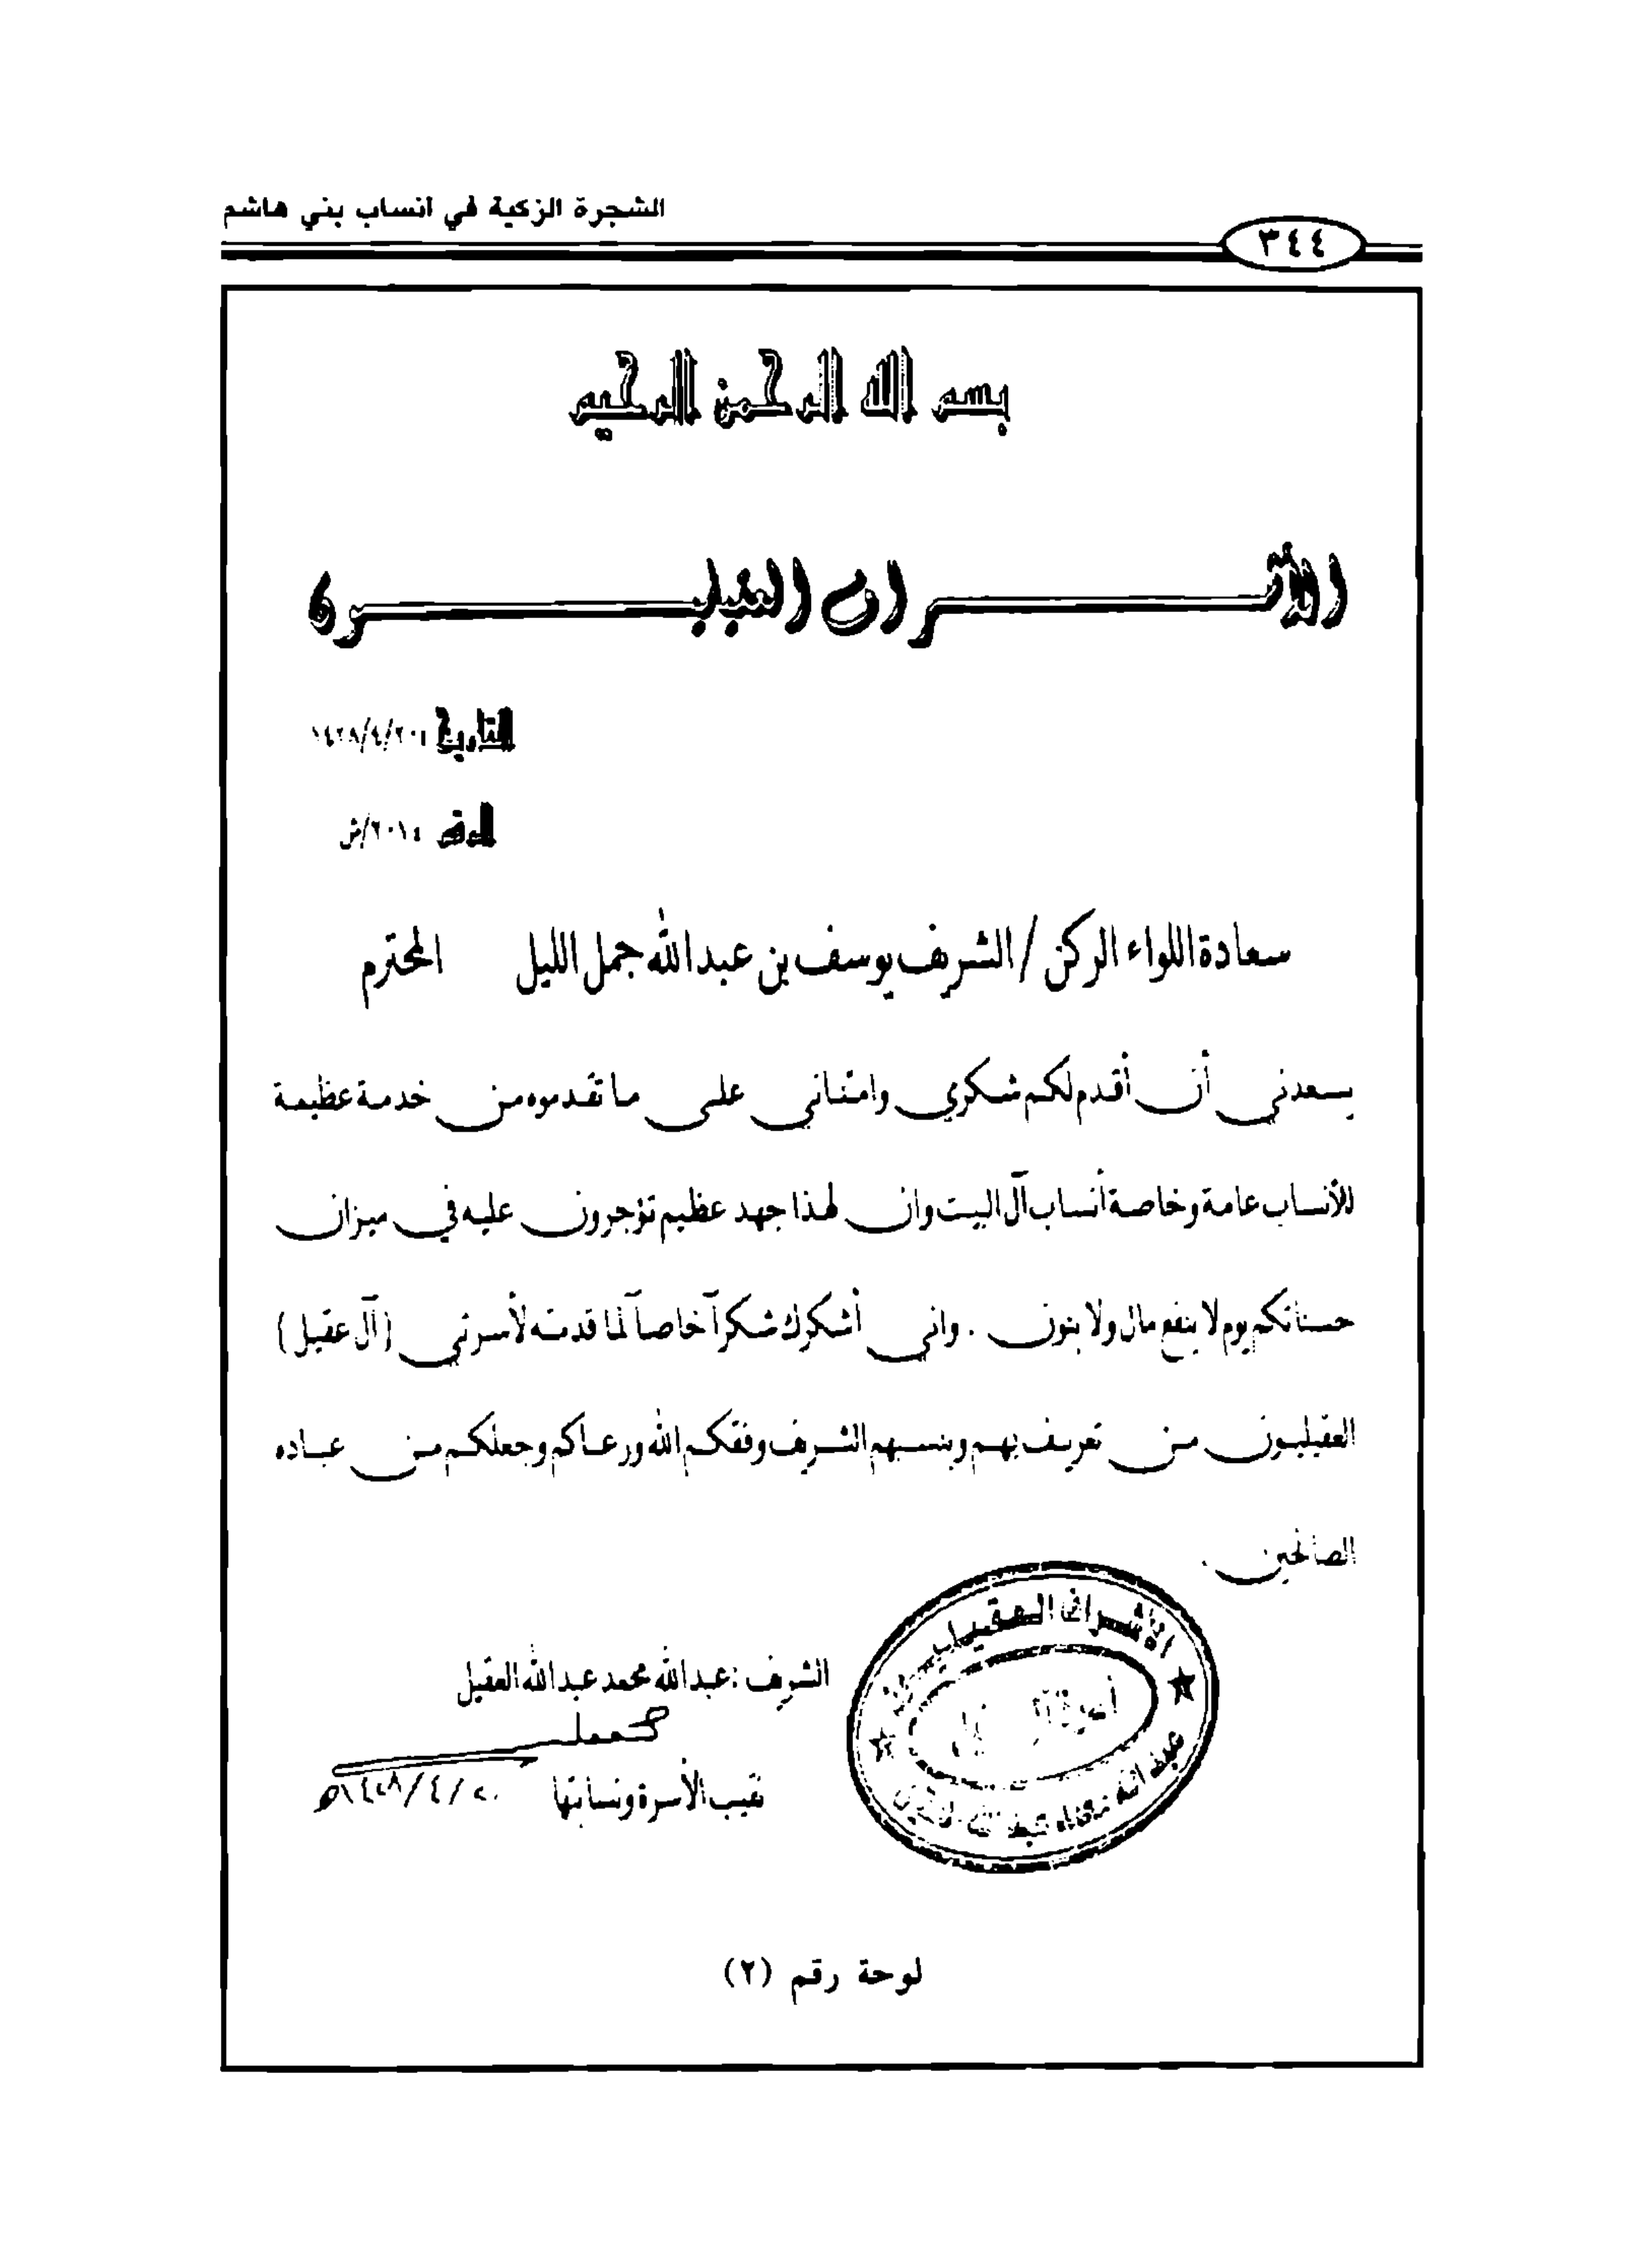 الشجرة الزكية في أنساب بني هاشم
٣٤٤
بسم الله الرحمن الرحيم
الأشراف العقيليون
التاريخ ١٤٢٨/٤/٢٠
الرقم ٢٠١٤/ش
سعادة اللواء الركن / الشريف يوسف بن عبدالله جمل الليل المحترم
يسعدني أن أقدم لكم شكري وامتناني على ما تقدموه من خدمة عظيمة
للأنساب عامة وخاصة أنساب آل البيت وان لهذا جهد عظيم تؤجرون عليه في ميزان
حسناتكم يوم لا ينفع مال ولا بنون . واني أشكرك شكراً خاصاً لما قدمته لأسرتي (آل عقيل)
العقيليون من تعريف بهم وبنسبهم الشريف وفقكم الله ورعاكم وجعلكم من عباده
الصالحين .
الأشراف العقيليون
عبد الله محمد عبد الله العقيل
الشريف : عبدالله محمد عبدالله العقيل
نقيب الأسرة ونسابتها ٢٠/٤/١٤٢٨هـ
لوحة رقم (٢)